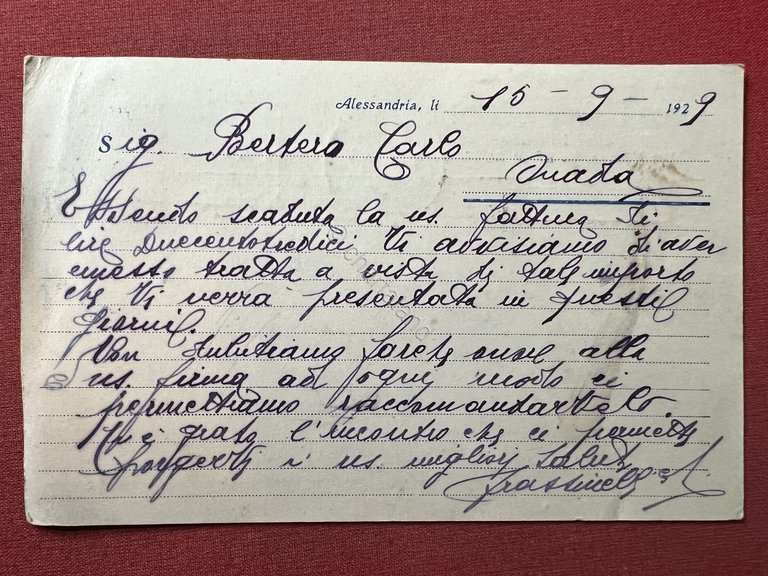 Alessandria, li 15 - 9 - 1929
Sig. Bertero Carlo
Ovada
Essendo scaduta la ns. fattura di
lire Duecentotredici Vi avvisiamo d'aver
emesso tratta a vista di tale importo
che Vi verrà presentata in questi
giorni.
Non dubitiamo farete onore alla
ns. firma ad ogni modo ci
permettiamo raccomandarvelo.
grato l'incontro che ci permette
porgerti i ns. migliori saluti
Frassinelli